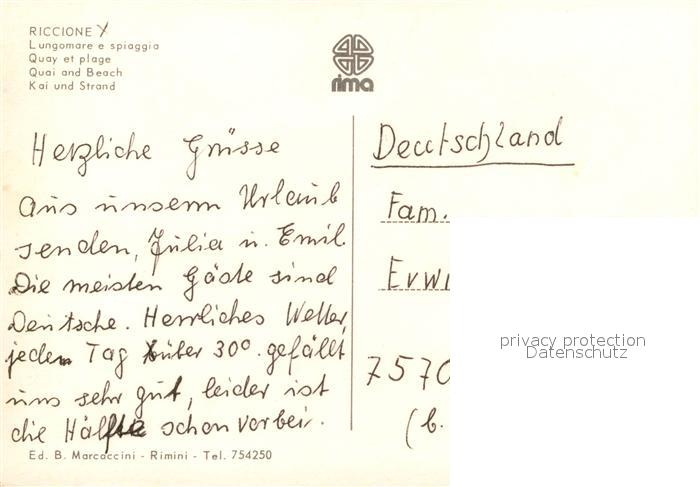 RICCIONE X
Lungomare e spiaggia
Quay et plage
Quai and Beach
Kai und Strand
rima
Herzliche Grüsse
aus unserm Urlaub
senden, Julia u. Emil.
Die meisten Gäste sind
Deutsche. Herrliches Wetter,
jeden Tag über 30°. gefällt
uns sehr gut, leider ist
die Hälfte schon vorbei.
Deutschland
Fam.
Erwi
7570
(b.
privacy protection
Datenschutz
Ed. B. Marcaccini - Rimini - Tel. 754250